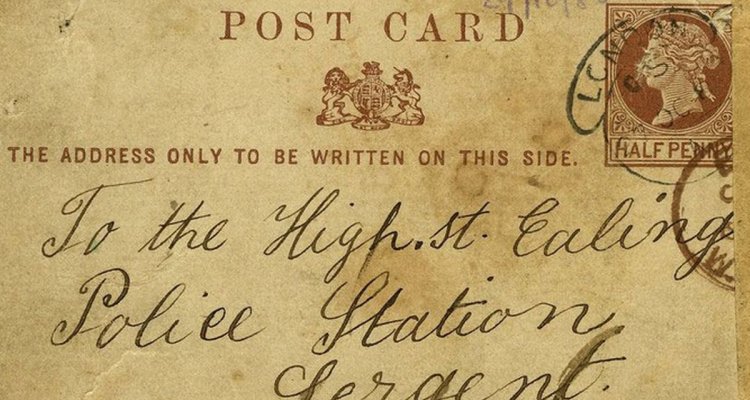 POST CARD
THE ADDRESS ONLY TO BE WRITTEN ON THIS SIDE.
LONDON
HALFPENNY
To the High.st. Ealing
Police Station
Sergent.